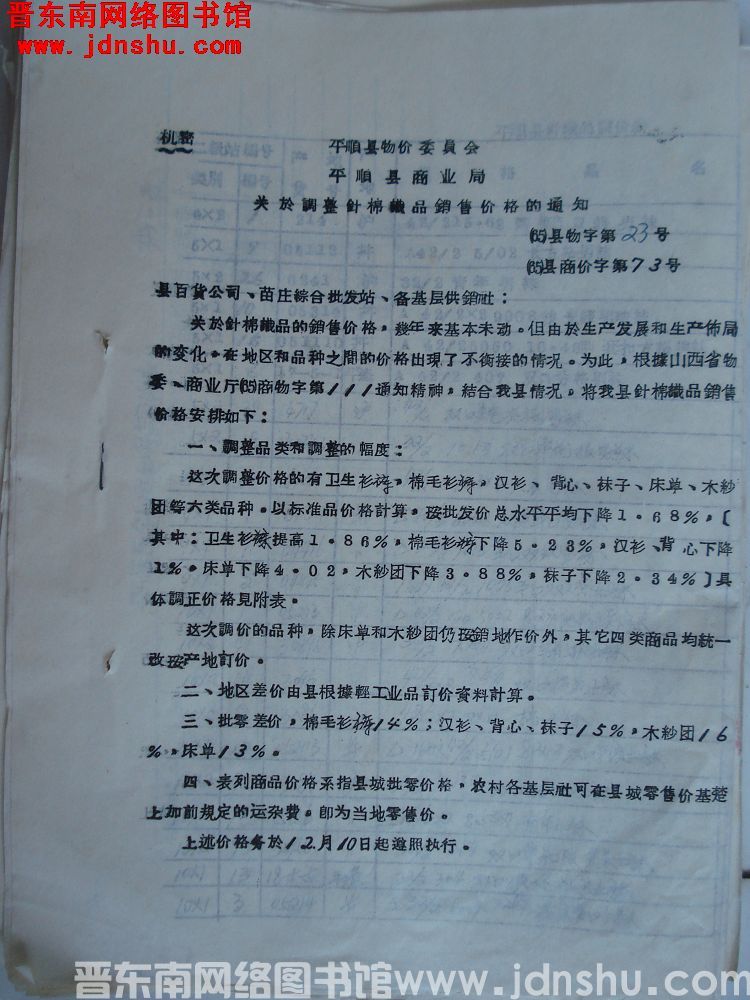 晋东南网络图书馆
www.jdnshu.com
机密
平順县物价委員会
平順县商业局
关於調整針棉織品銷售价格的通知
(65)县物字第23号
(65)县商价字第73号
县百貨公司、苗庄綜合批发站、各基层供銷社：
关於針棉織品的銷售价格，幾年来基本未动。但由於生产发展和生产佈局
的变化，在地区和品种之間的价格出現了不衡接的情况。为此，根據山西省物
委、商业厅(65)商物字第111通知精神，結合我县情况，将我县針棉織品銷售
价格安排如下：
一、調整品类和調整的幅度：
这次調整价格的有卫生衫裤，棉毛衫裤，汉衫、背心、袜子、床单、木紗
团等六类品种。以标准品价格計算，按批发价总水平平均下降1．68%，〔
其中：卫生衫裤提高1．86%，棉毛衫裤下降5．23%，汉衫、背心下降
1%。床单下降4．02，木紗团下降3．88%，袜子下降2．34%〕具
体調正价格見附表。
这次調价的品种，除床单和木紗团仍按銷地作价外，其它四类商品均統一
改按产地訂价。
二、地区差价由县根據輕工业品訂价資料計算。
三、批零差价，棉毛衫裤14%；汉衫、背心、袜子15%，木紗团16
%，床单13%。
四、表列商品价格系指县城批零价格，农村各基层社可在县城零售价基楚
上加前規定的运杂費。卽为当地零售价。
上述价格务於12月10日起遵照执行。
晋东南网络图书馆www.jdnshu.com